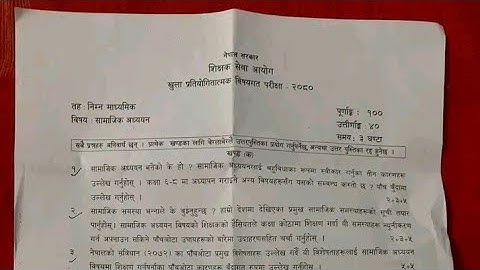 नेपाल सरकार
शिक्षक सेवा आयोग
खुल्ला प्रतियोगितात्मक विषयगत परीक्षा - २०८०
तह : निम्न माध्यमिक
पूर्णाङ्क : १००
विषय : सामाजिक अध्ययन
उत्तीर्णाङ्क : ४०
समय : ३ घण्टा
सबै प्रश्नहरु अनिवार्य छन् । प्रत्येक खण्डका लागि बेग्लाबेग्लै उत्तरपुस्तिका प्रयोग गर्नुपर्नेछ, अन्यथा उत्तर पुस्तिका रद्द हुनेछ ।
खण्ड (क)
१. सामाजिक अध्ययन भनेको के हो ? सामाजिक अध्ययनलाई बहुविधाका रूपमा स्वीकार गर्नुका तीन कारणहरू
उल्लेख गर्नुहोस् । कक्षा ६-८ मा अध्यापन गराइने अन्य विषयहरूसँग यसको सम्बन्ध कस्तो छ ? पाँच बुँदामा
२+३+५
२. सामाजिक समस्या भन्नाले के बुझ्नुहुन्छ ? हाम्रो देशमा देखिएका प्रमुख सामाजिक समस्याहरूको सूची तयार
पार्नुहोस् । सामाजिक अध्ययन शिक्षकको हैसियतले कक्षा कोठामा शिक्षण गर्दा यी समस्याहरू न्यूनीकरण
गर्न अपनाउन सकिने पाँचवोटा उपायहरूको बारेमा उदाहरणसहित चर्चा गर्नुहोस् ।
२+३+५
३. नेपालको संविधान (२०७२) का प्रमुख विशेषताहरू उल्लेख गर्दै यी विशेषताहरूलाई सामाजिक अध्ययन
विषयमा शिक्षण गर्नुका पाँचवोटा कारणहरू
उल्लेख गर्नुहोस् ।